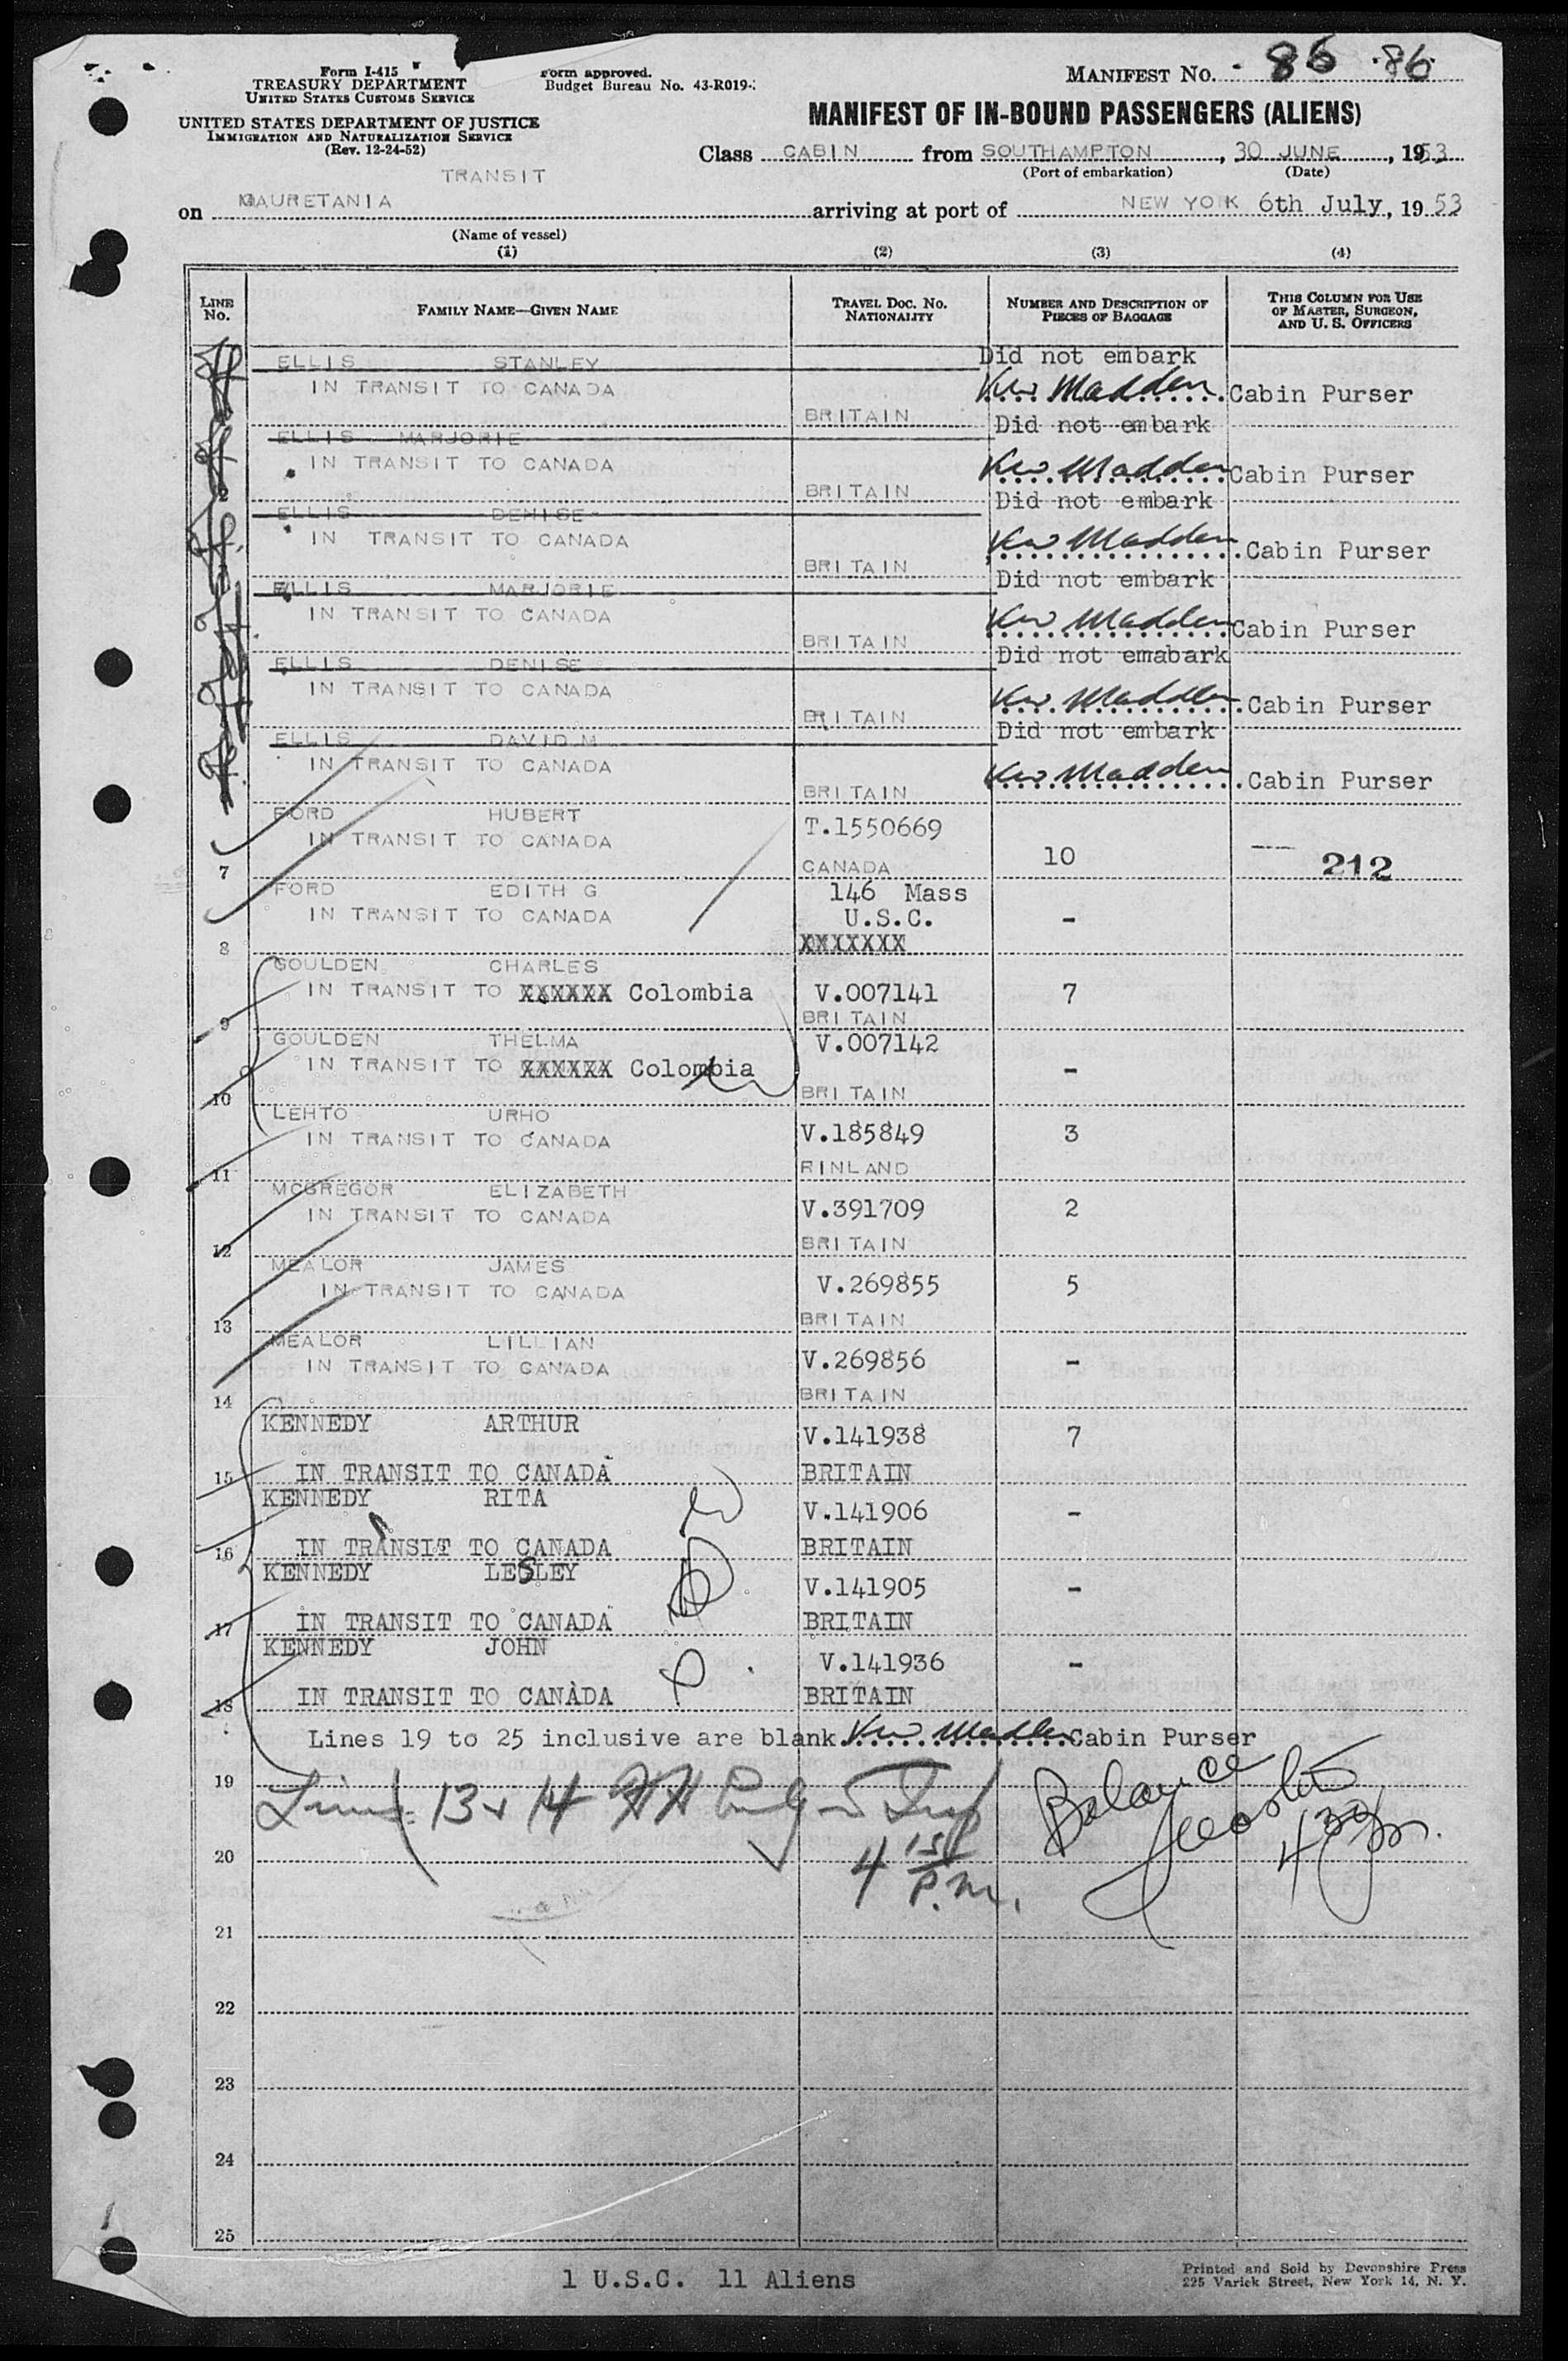 Form I-415
TREASURY DEPARTMENT
UNITED STATES CUSTOMS SERVICE
UNITED STATES DEPARTMENT OF JUSTICE
IMMIGRATION AND NATURALIZATION SERVICE
(Rev. 12-24-52)
Form approved.
Budget Bureau No. 43-R019-
MANIFEST No. 86 86
MANIFEST OF IN-BOUND PASSENGERS (ALIENS)
Class CABIN from SOUTHAMPTON, 30 JUNE, 1953
(Port of embarkation) (Date)
TRANSIT
on MAURETANIA arriving at port of NEW YORK 6th July, 1953
(Name of vessel)
(1) (2) (3) (4)
LINE No. FAMILY NAME—GIVEN NAME TRAVEL DOC. NO. NATIONALITY NUMBER AND DESCRIPTION OF PIECES OF BAGGAGE THIS COLUMN FOR USE OF MASTER, SURGEON, AND U. S. OFFICERS
ELLIS STANLEY Did not embark
IN TRANSIT TO CANADA Madden Cabin Purser
BRITAIN
ELLIS MARJORIE Did not embark
IN TRANSIT TO CANADA Madden Cabin Purser
2 BRITAIN
ELLIS DENISE Did not embark
IN TRANSIT TO CANADA Madden Cabin Purser
BRITAIN
ELLIS MARJORIE Did not embark
IN TRANSIT TO CANADA Madden Cabin Purser
BRITAIN
ELLIS DENISE Did not emabark
IN TRANSIT TO CANADA Madden Cabin Purser
BRITAIN
ELLIS DAVID M Did not embark
IN TRANSIT TO CANADA Madden Cabin Purser
BRITAIN
FORD HUBERT T.1550669
IN TRANSIT TO CANADA
7 CANADA 10 212
FORD EDITH G 146 Mass
IN TRANSIT TO CANADA U.S.C. -
8 XXXXXXX
GOULDEN CHARLES
IN TRANSIT TO XXXXXX Colombia V.007141 7
9 BRITAIN
GOULDEN THELMA V.007142
IN TRANSIT TO XXXXXX Colombia -
10 BRITAIN
LEHTO URHO
IN TRANSIT TO CANADA V.185849 3
11 RINLAND
MCGREGOR ELIZABETH
IN TRANSIT TO CANADA V.391709 2
12 BRITAIN
MEALOR JAMES
IN TRANSIT TO CANADA V.269855 5
13 BRITAIN
MEALOR LILLIAN
IN TRANSIT TO CANADA V.269856 -
14 BRITAIN
KENNEDY ARTHUR V.141938 7
15 IN TRANSIT TO CANADA BRITAIN
KENNEDY RITA V.141906 -
16 IN TRANSIT TO CANADA BRITAIN
KENNEDY LESLEY V.141905 -
17 IN TRANSIT TO CANADA BRITAIN
KENNEDY JOHN V.141936 -
18 IN TRANSIT TO CANADA BRITAIN
Lines 19 to 25 inclusive are blank Madden Cabin Purser
19
Lines 13 + 14
Balance
4 15 P.M.
4 30 pm.
20
21
22
23
24
25
1 U.S.C. 11 Aliens
Printed and Sold by Devonshire Press
225 Varick Street, New York 14, N. Y.